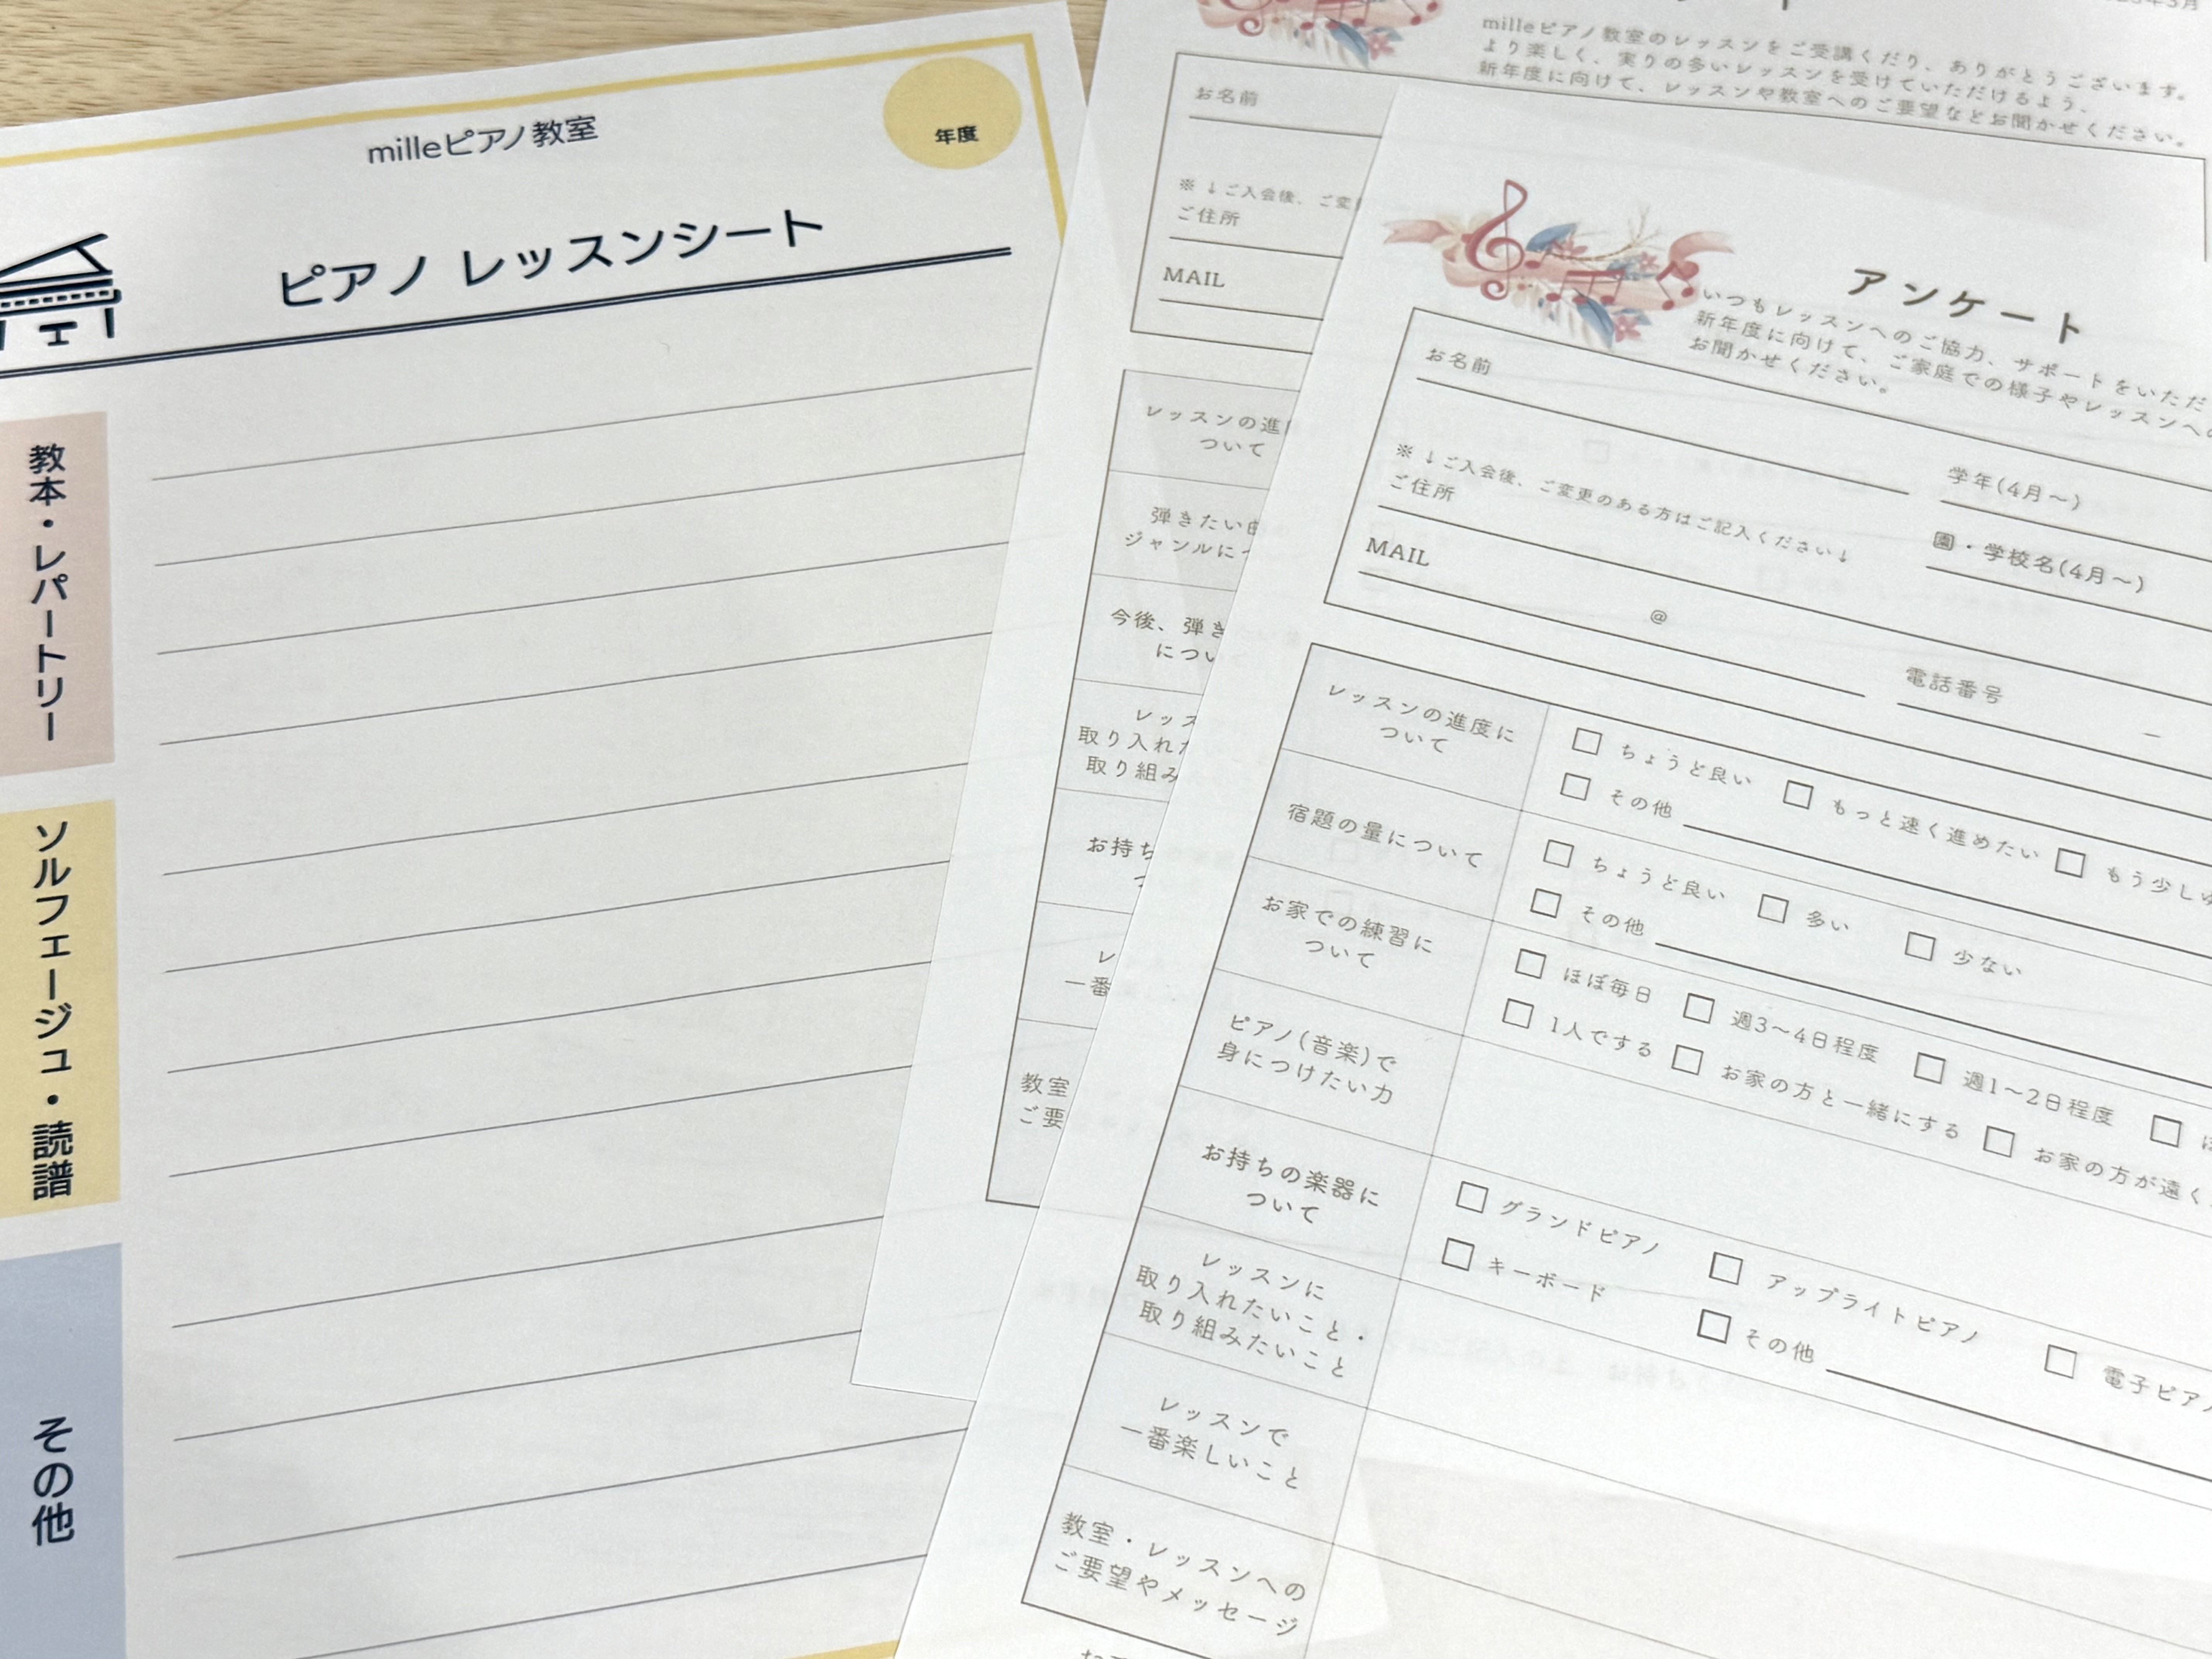 milleピアノ教室
年度
ピアノ レッスンシート
教本・レパートリー
ソルフェージュ・読譜
その他
milleピアノ教室のレッスンをご受講くだり、ありがとうございます。
より楽しく、実りの多いレッスンを受けていただけるよう、
新年度に向けて、レッスンや教室へのご要望などお聞かせください。
お名前
※↓ご入会後、ご変
ご住所
MAIL
レッスンの進
ついて
弾きたい
ジャンルに
今後、弾き
につい
レッス
取り入れた
取り組み
お持ち
つ
レ
一番
教室
ご要
アンケート
いつもレッスンへのご協力、サポートをいただ
新年度に向けて、ご家庭での様子やレッスンへの
お聞かせください。
お名前
学年(4月〜)
※↓ご入会後、ご変更のある方はご記入ください↓
ご住所
園・学校名(4月〜)
MAIL
@
電話番号
−
レッスンの進度に
ついて
□ ちょうど良い □ もっと速く進めたい □ もう少しゆ
□ その他
宿題の量について
□ ちょうど良い □ 多い □ 少ない
□ その他
お家での練習に
ついて
□ ほぼ毎日 □ 週3〜4日程度 □ 週1〜2日程度 □ ほ
□ 1人でする □ お家の方と一緒にする □ お家の方が遠く
ピアノ(音楽)で
身につけたい力
お持ちの楽器に
ついて
□ グランドピアノ □ アップライトピアノ □ 電子ピアノ
□ キーボード □ その他
レッスンに
取り入れたいこと・
取り組みたいこと
レッスンで
一番楽しいこと
教室・レッスンへの
ご要望やメッセージ